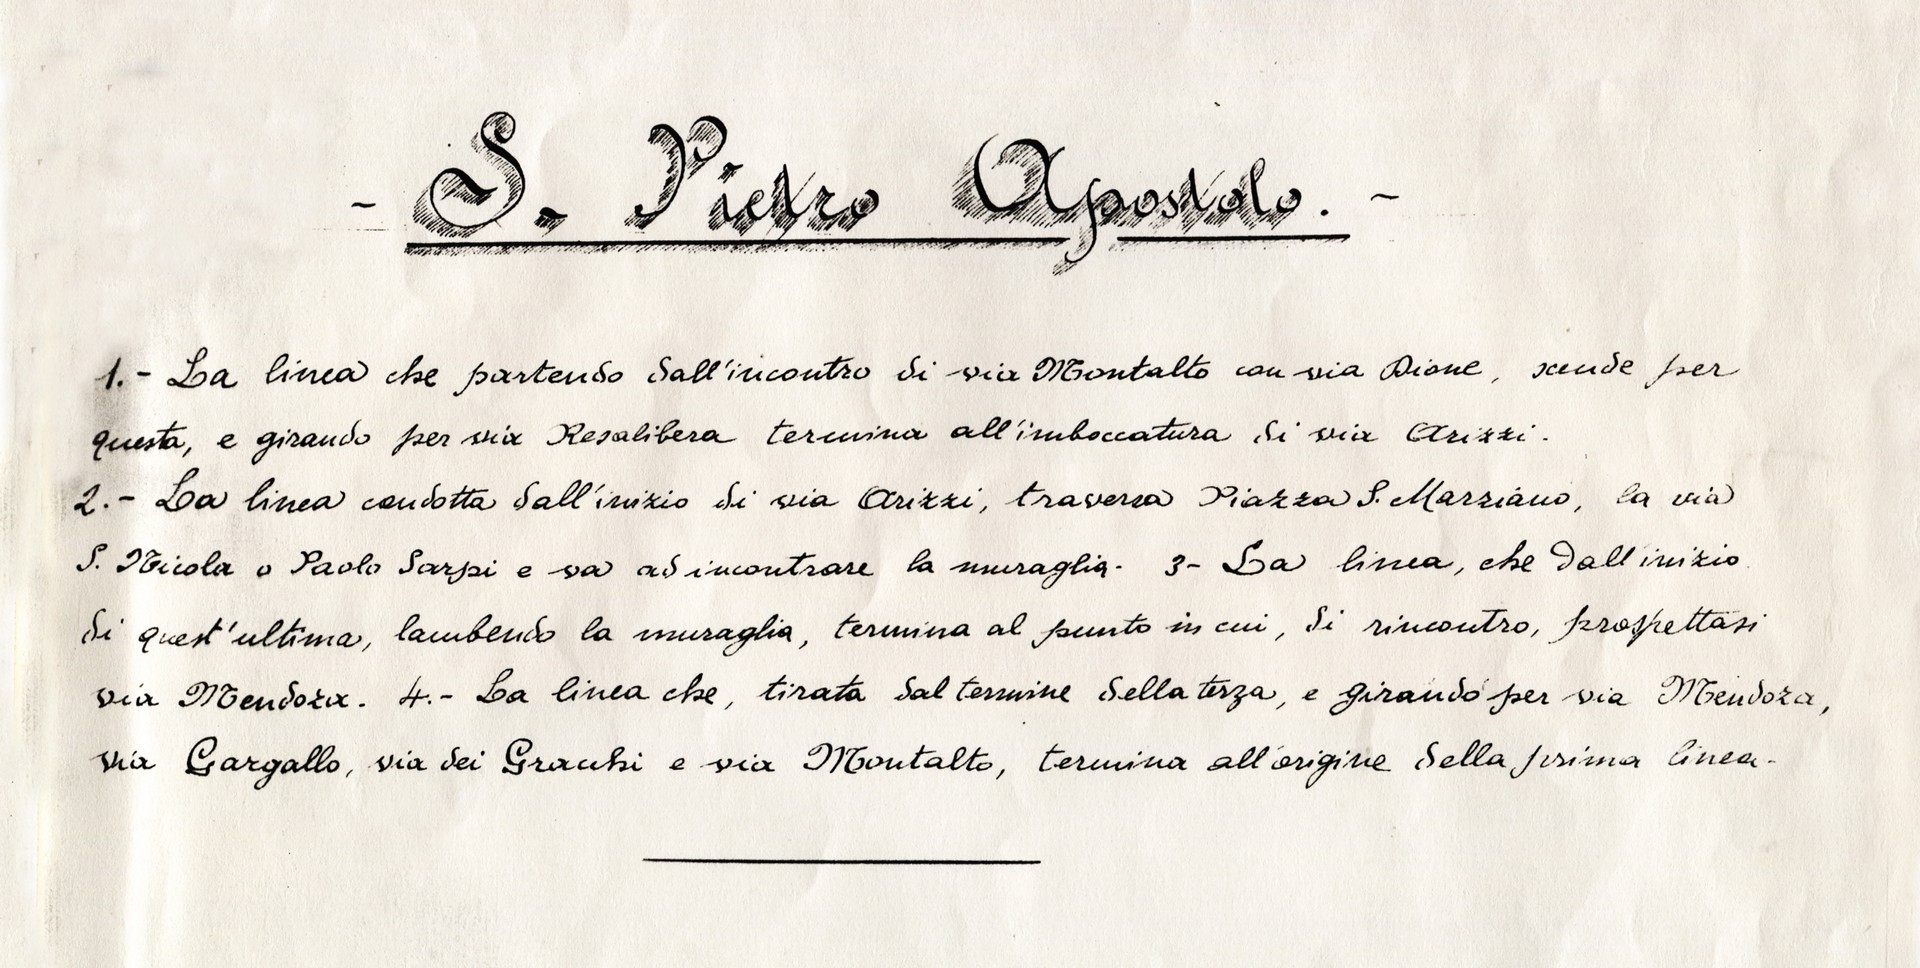 - S. Pietro Apostolo. -
1.- La linea che partendo dall'incontro di via Montalto con via Dione, scende per
questa, e girando per via Resalibera termina all'imboccatura di via Arizzi.
2.- La linea condotta dall'inizio di via Arizzi, traversa Piazza S. Marziano, la via
S. Nicola o Paolo Sarpi e va ad incontrare la muraglia. 3- La linea, che dall'inizio
di quest'ultima, lambendo la muraglia, termina al punto in cui, di rincontro, prospettasi
via Mendoza. 4.- La linea che, tirata dal termine della terza, e girando per via Mendoza,
via Gargallo, via dei Gracchi e via Montalto, termina all'origine della prima linea.